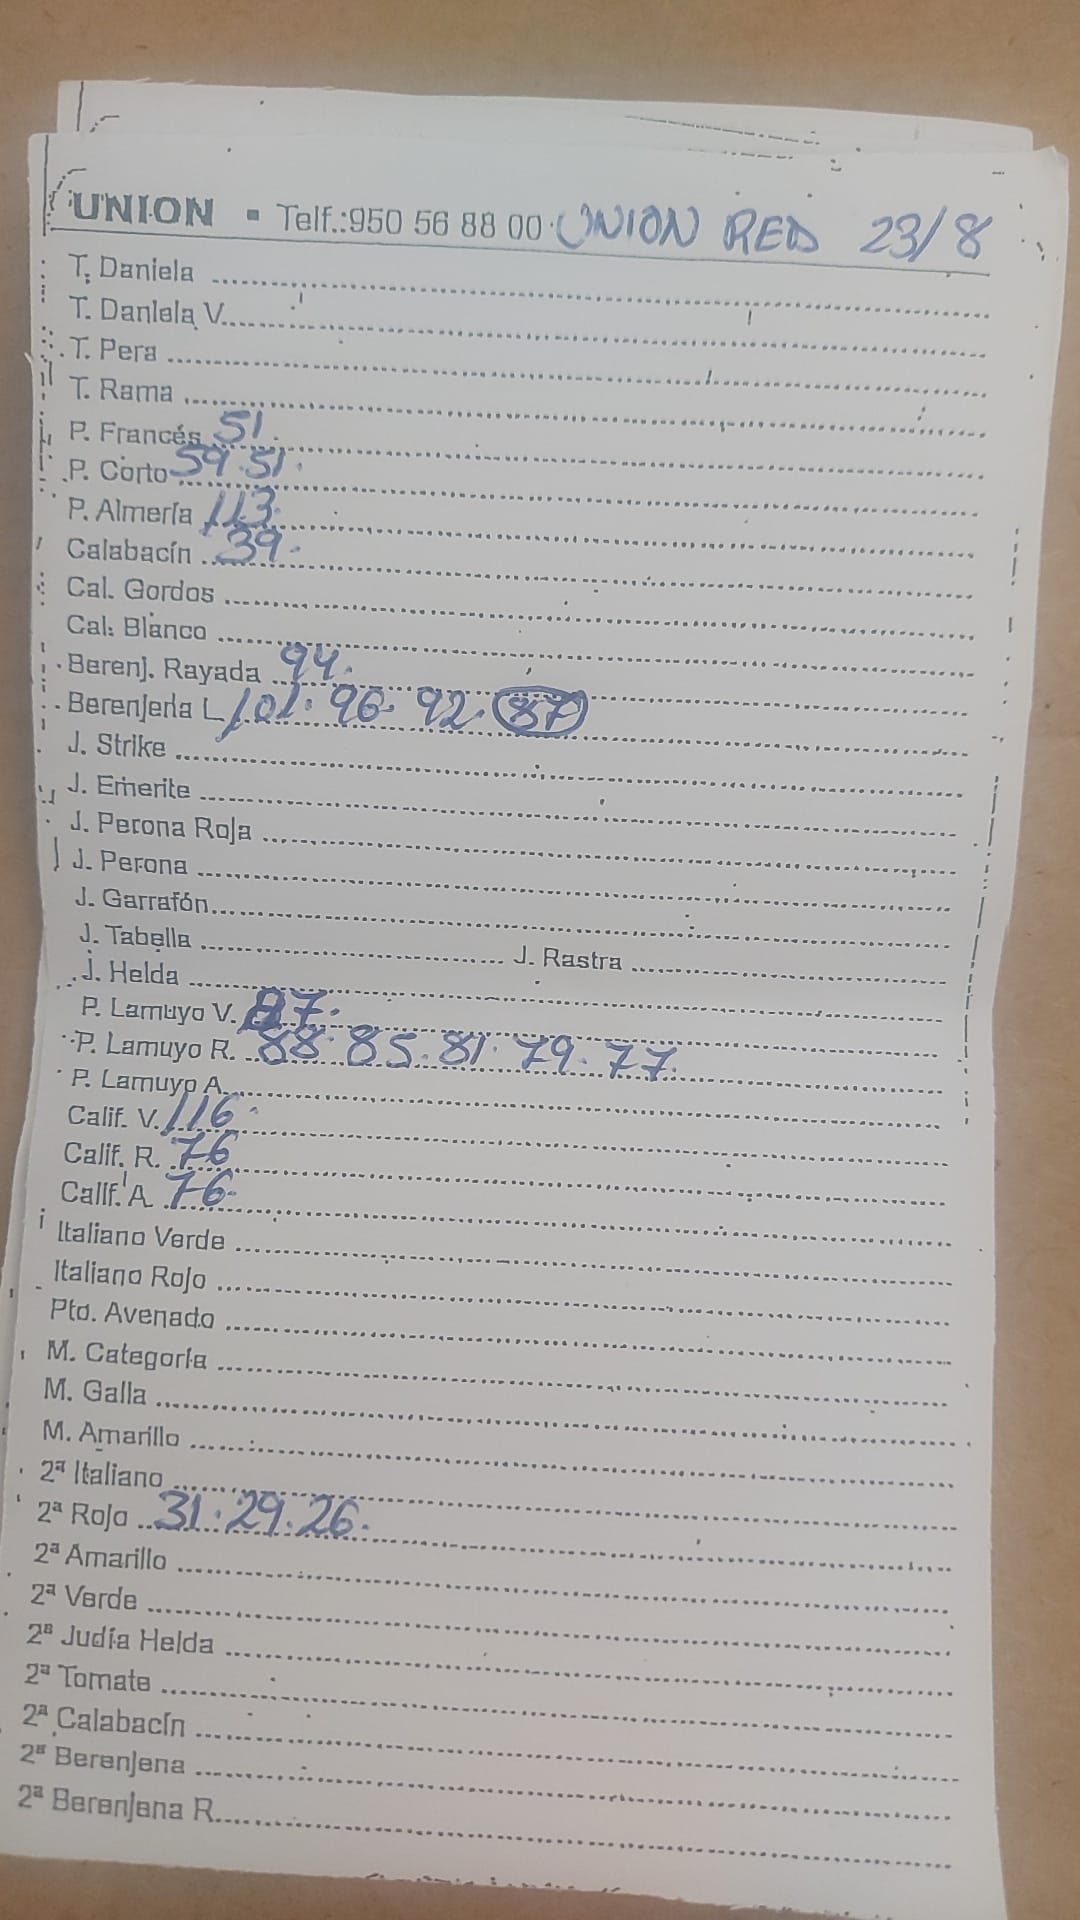 UNION - Telf.:950 56 88 00 UNION RED 23/8
T. Daniela
T. Daniela V.
T. Pera
T. Rama
P. Francés 51.
P. Corto 59.51.
P. Almería 113.
Calabacín 39.
Cal. Gordos
Cal. Blanco
Berenj. Rayada 94.
Berenjena L. 101. 96. 92. 87
J. Strike
J. Emerite
J. Perona Roja
J. Perona
J. Garrafón
J. Tabella J. Rastra
J. Helda
P. Lamuyo V. 87.
P. Lamuyo R. 88. 85. 81. 79. 77.
P. Lamuyo A.
Calif. V. 116.
Calif. R. 76
Calif. A. 76.
Italiano Verde
Italiano Rojo
Pto. Avenado
M. Categoría
M. Galia
M. Amarillo
2ª Italiano
2ª Rojo 31. 29. 26.
2ª Amarillo
2ª Verde
2ª Judía Helda
2ª Tomate
2ª Calabacín
2ª Berenjena
2ª Berenjena R.